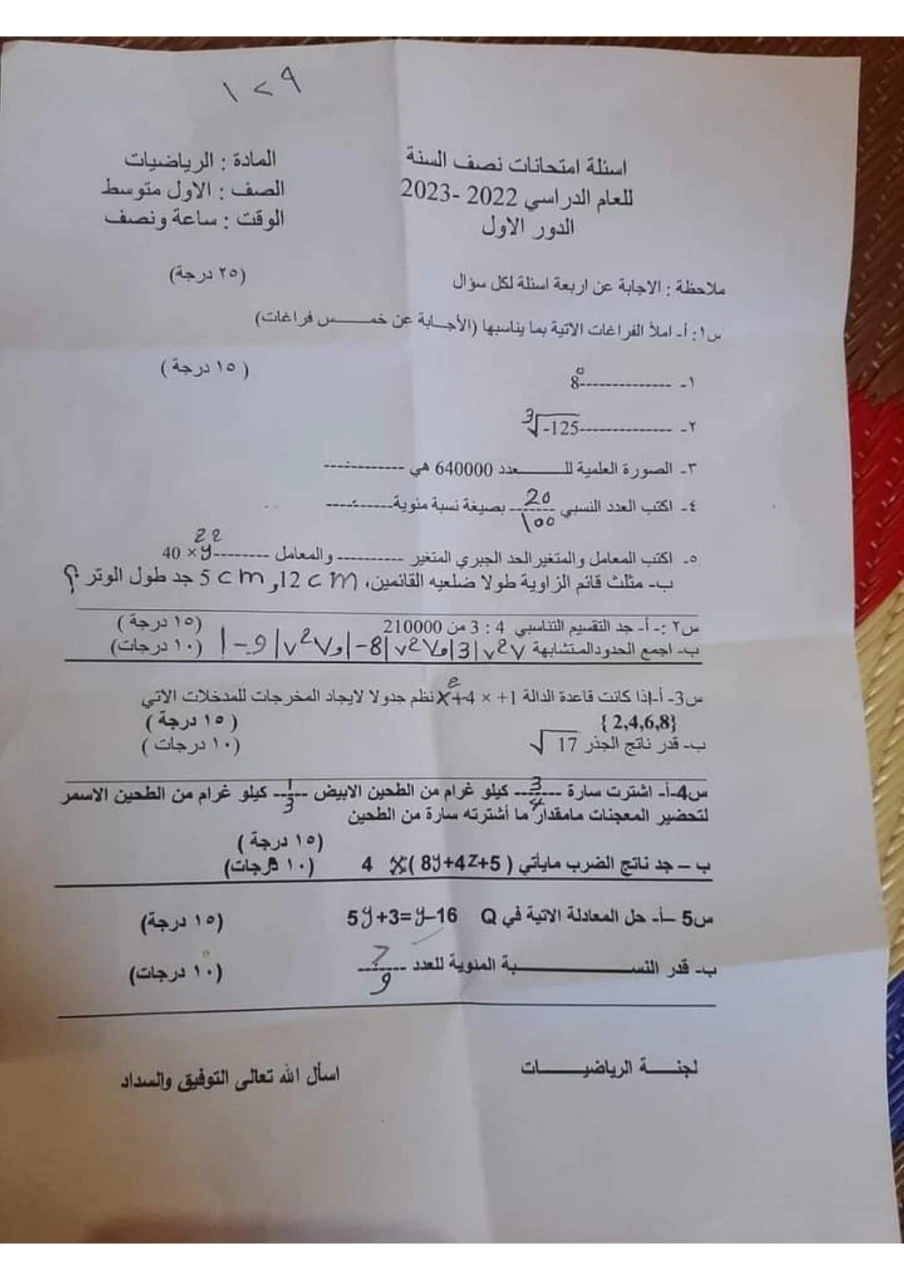 ١ < ٩
اسئلة امتحانات نصف السنة
للعام الدراسي 2022 -2023
الدور الاول
المادة : الرياضيات
الصف : الاول متوسط
الوقت : ساعة ونصف
ملاحظة : الاجابة عن اربعة اسئلة لكل سؤال (٢٥ درجة)
س١: أ- املأ الفراغات الاتية بما يناسبها (الأجـابة عن خمـــس فراغات)
(١٥ درجة )
١- --------------8⁰
٢- --------------∛-125
٣- الصورة العلمية للـــــعدد 640000 هي ------------
٤- اكتب العدد النسبي 20/100 بصيغة نسبة مئوية------------
٥- اكتب المعامل والمتغير الحد الجبري المتغير ---------- والمعامل -------- 40 ×y²²
ب- مثلث قائم الزاوية طولا ضلعيه القائمين، 12cm و 5cm جد طول الوتر ؟
س٢ :- أ- جد التقسيم التناسبي 4 : 3 من 210000 (١٥ درجة )
ب- اجمع الحدود المتشابهة (١٠ درجات)
س3- أ-إذا كانت قاعدة الدالة نظم جدولا لايجاد المخرجات للمدخلات الاتي
{2,4,6,8} (١٥ درجة )
ب- قدر ناتج الجذر √17 (١٠ درجات )
س4-أ- اشترت سارة 3/4 كيلو غرام من الطحين الابيض 1/3 كيلو غرام من الطحين الاسمر
لتحضير المعجنات مامقدار ما أشترته سارة من الطحين
(١٥ درجة )
ب – جد ناتج الضرب مايأتي ( 8y+4z+5 )× 4 (١٠ درجات)
س5 –أ- حل المعادلة الاتية في Q 5y+3=y-16 (١٥ درجة)
ب- قدر النســـــــــبة المئوية للعدد 7/9 (١٠ درجات)
لجنـــة الرياضيـــــات
اسأل الله تعالى التوفيق والسداد